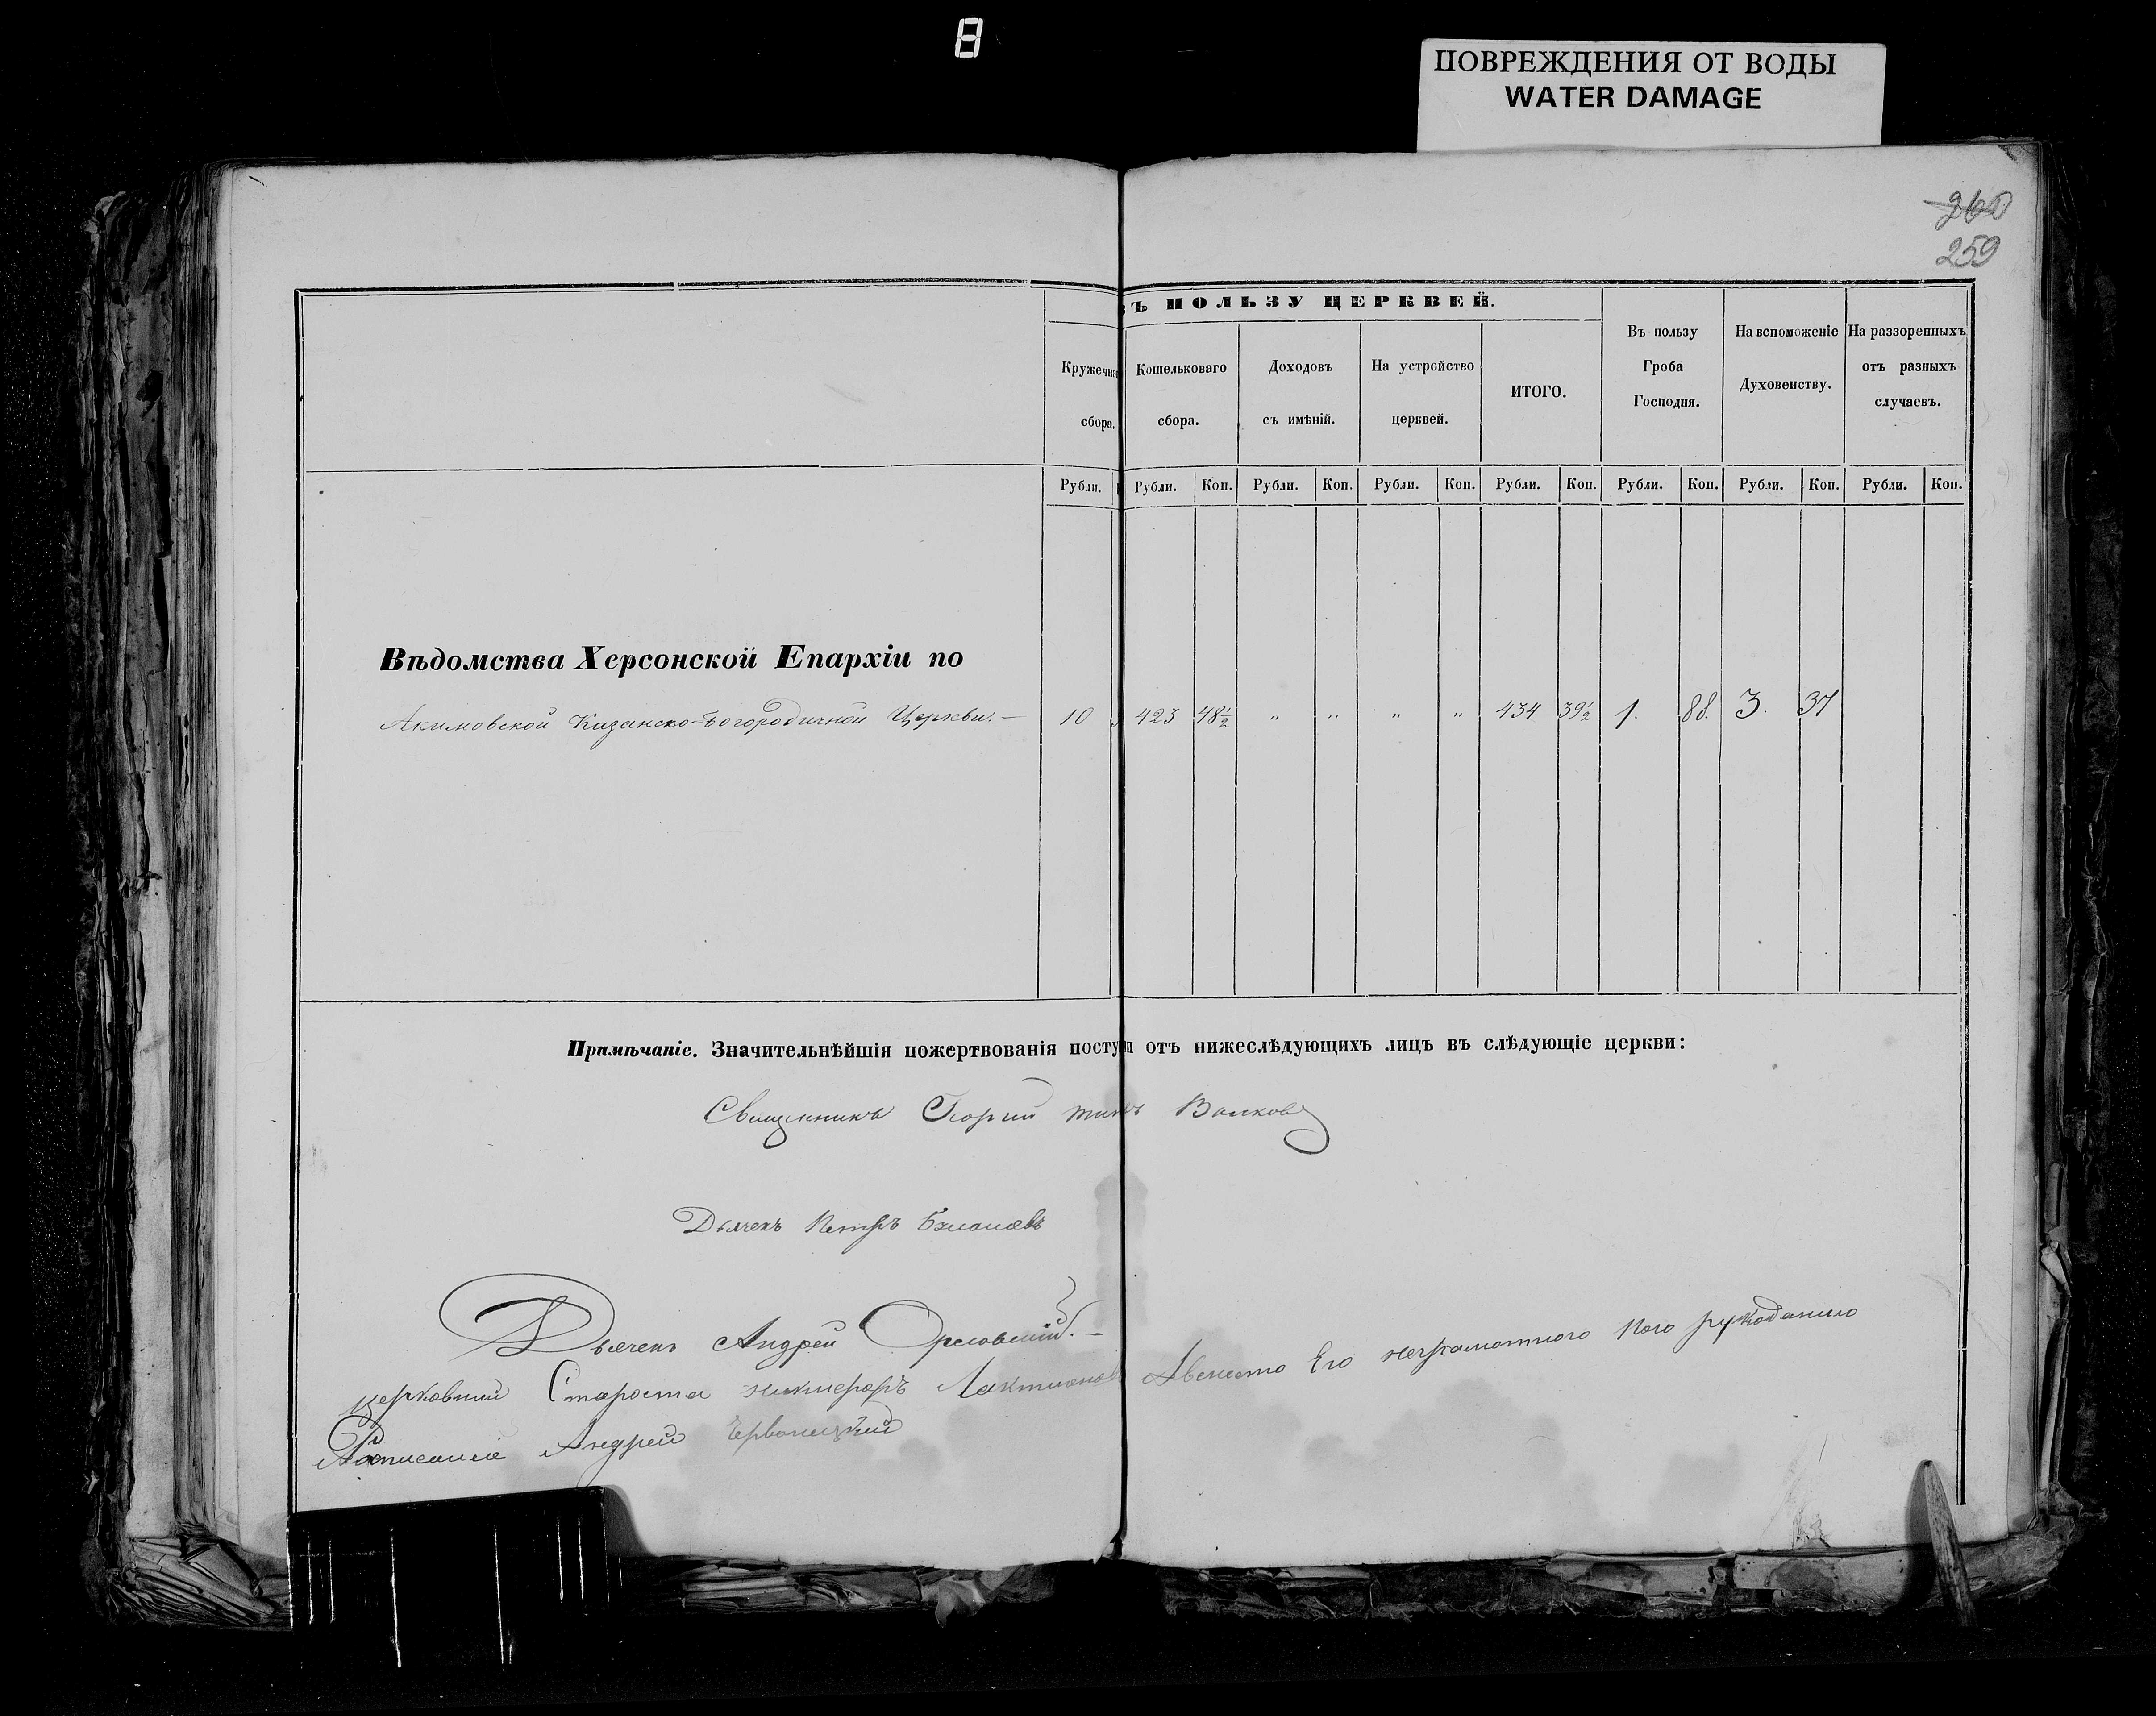 8
ПОВРЕЖДЕНИЯ ОТ ВОДЫ
WATER DAMAGE
260
259
ВЪ ПОЛЬЗУ ЦЕРКВЕЙ.
Кружечна
сбора.
Кошельковаго
сбора.
Доходовъ
съ имѣній.
На устройство
церквей.
ИТОГО.
Въ пользу
Гроба
Господня.
На вспоможеніе
Духовенству.
На раззоренныхъ
отъ разныхъ
случаевъ.
Рубли. Рубли. Коп. Рубли. Коп. Рубли. Коп. Рубли. Коп. Рубли. Коп. Рубли. Коп. Рубли. Коп.
Вѣдомства Херсонской Епархіи по
Акимовской Казанско-Богородичной Церкви. — 10 423 48½ " " " " 434 39½ 1. 88. 3. 37
Примѣчаніе. Значительнѣйшія пожертвованія поступ отъ нижеслѣдующихъ лицъ въ слѣдующіе церкви:
Священникъ Георгий Волковъ
Дьячекъ Петръ
Дьячекъ Андрей Орловскій. —
церковний Староста никифоръ Лактионовъ Авместо Его неграмотного
Андрей Червонецкий